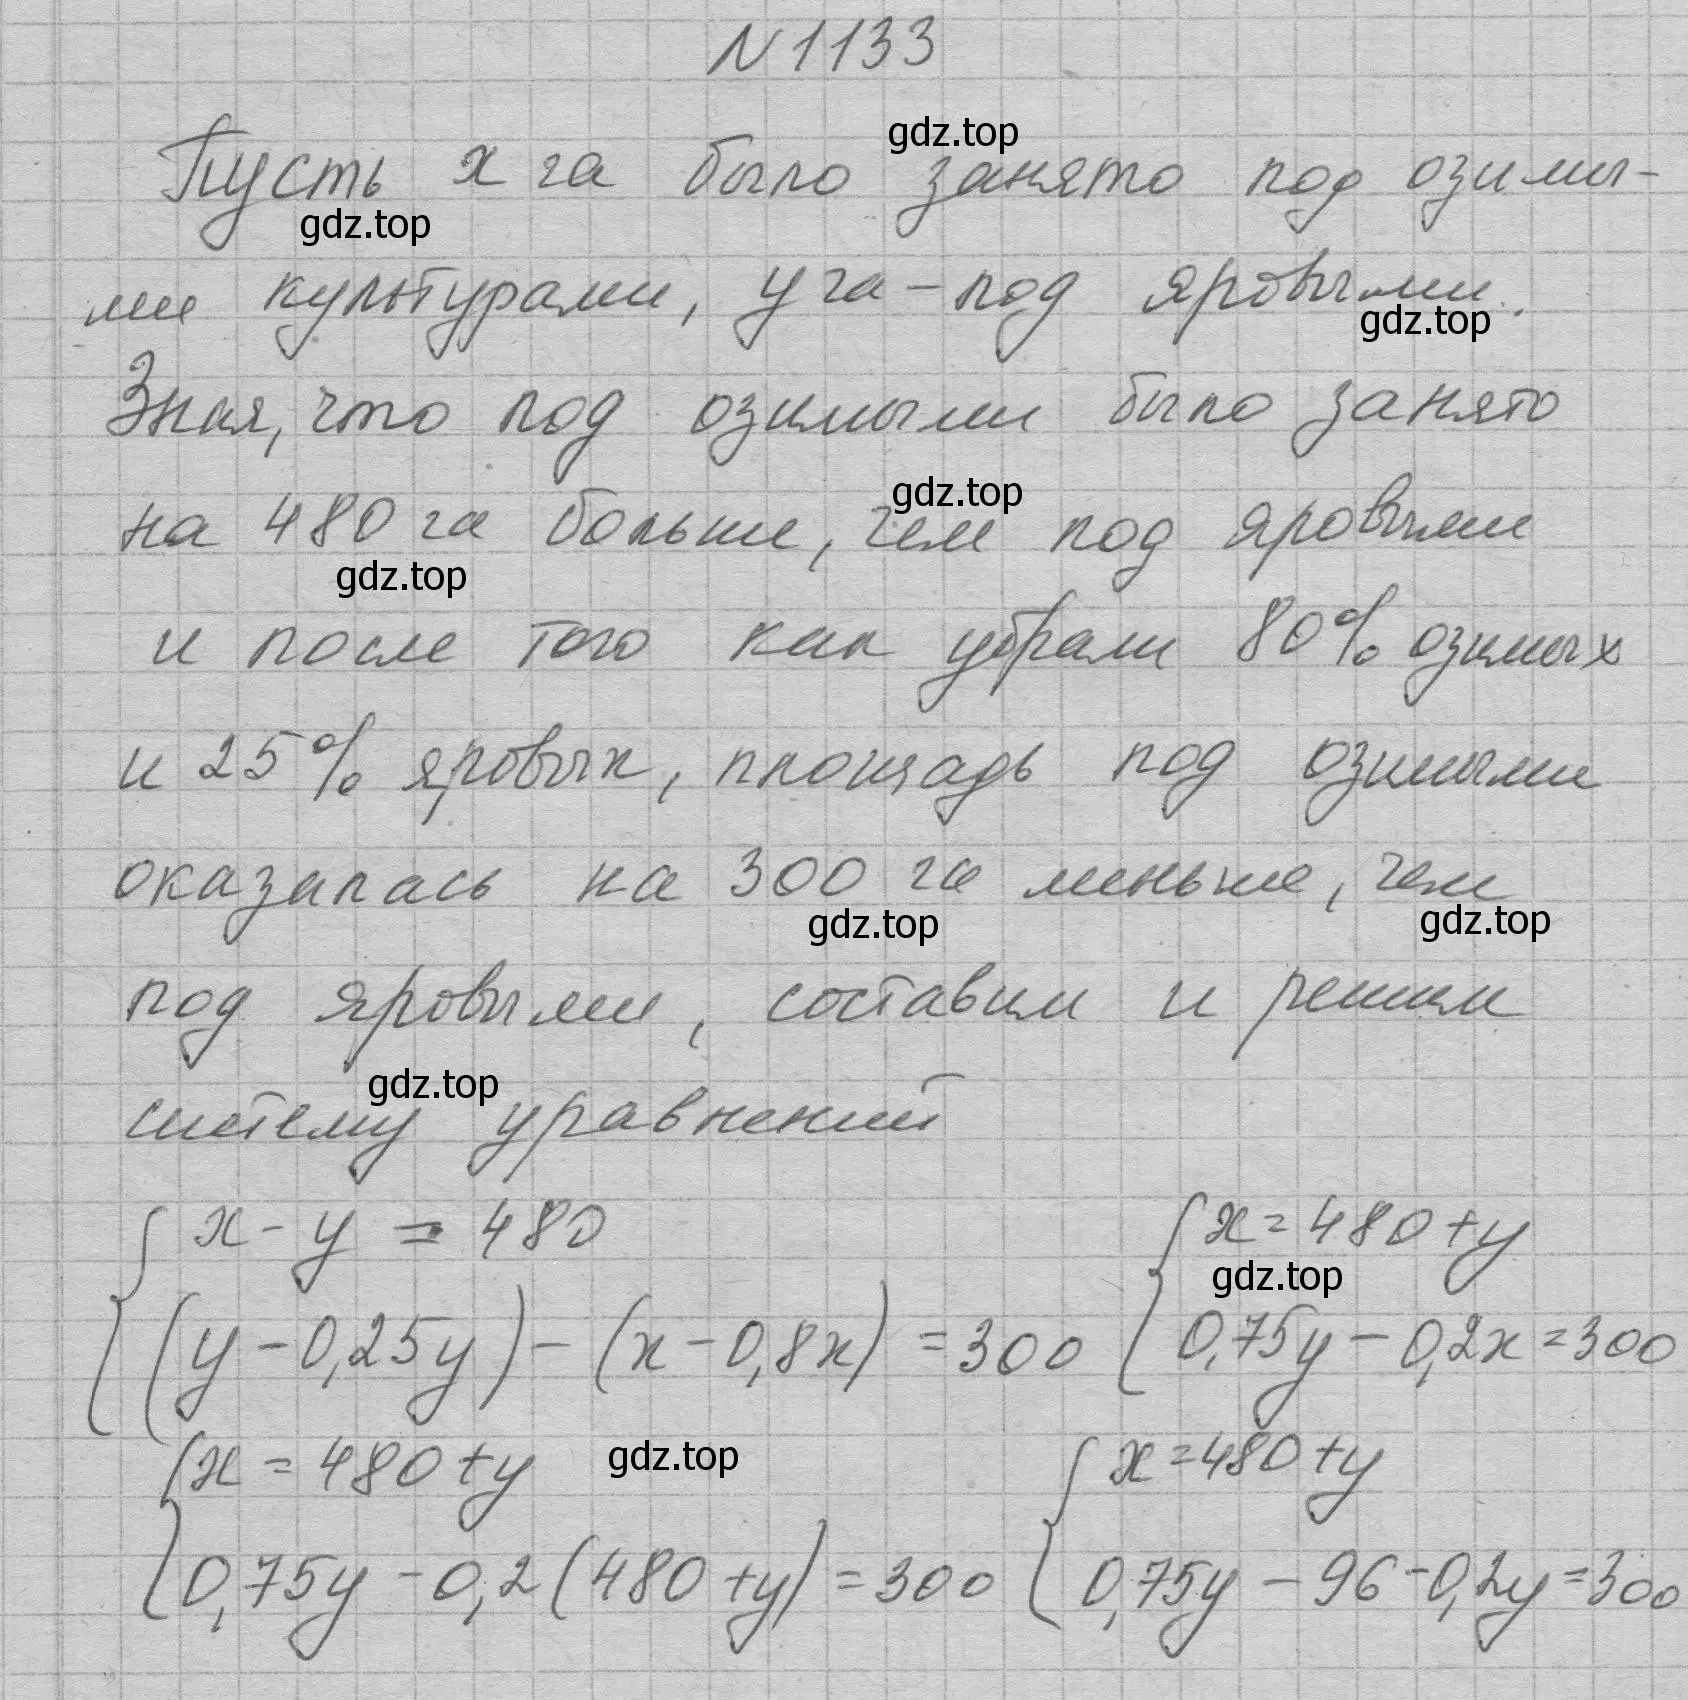 N 1133
gdz.top
Пусть x га было занято под озимы-
gdz.top
ми культурами, y га - под яровыми.
gdz.top
Зная, что под озимыми было занято
gdz.top
на 480 га больше, чем под яровыми
gdz.top
и после того как убрали 80% озимых
и 25% яровых, площадь под озимыми
оказалась на 300 га меньше, чем
gdz.top
gdz.top
под яровыми, составим и решим
gdz.top
систему уравнений
{ x - y = 480 { x = 480 + y
gdz.top
(y - 0,25y) - (x - 0,8x) = 300 0,75y - 0,2x = 300
{ x = 480 + y gdz.top { x = 480 + y
0,75y - 0,2(480 + y) = 300 0,75y - 96 - 0,2y = 300